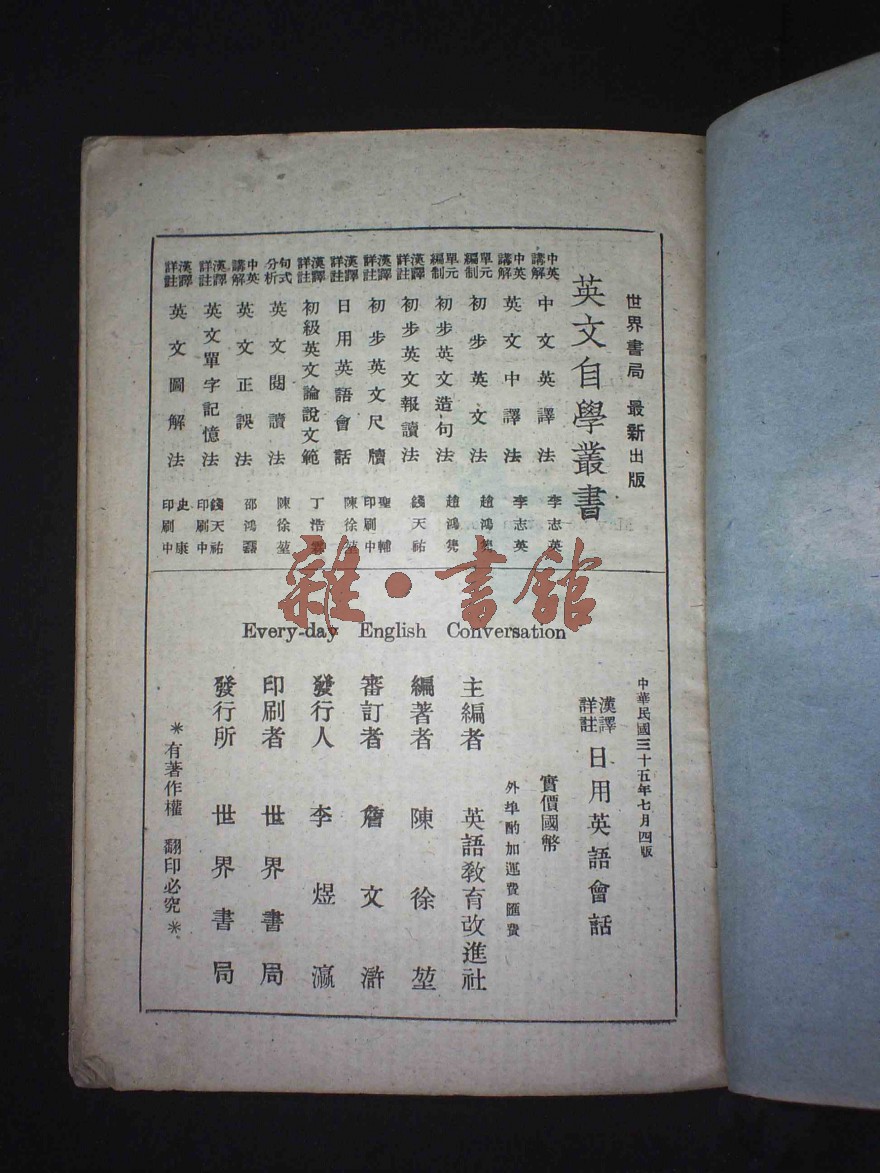 世界書局 最新出版
英文自學叢書
中英講解 中文英譯法 李志英
中英講解 英文中譯法 李志英
單元編制 初步英文法 趙鴻雋
單元編制 初步英文造句法 趙鴻雋
漢譯詳註 初步英文報讀法 錢天祐
漢譯詳註 初步英文尺牘 聖輔印刷中
漢譯詳註 日用英語會話 陳徐堃
漢譯詳註 初級英文論說文範 丁浩霖
句式分析 英文閱讀法 陳徐堃
中英講解 英文正誤法 邵鴻
漢譯詳註 英文單字記憶法 錢天祐印刷中
漢譯詳註 英文圖解法 史康印刷中
雜·書館
Every-day English Conversation
中華民國三十五年七月四版
漢譯詳註 日用英語會話
實價國幣
外埠酌加運費匯費
主編者 英語教育改進社
編著者 陳徐堃
審訂者 詹文滸
發行人 李煜瀛
印刷者 世界書局
發行所 世界書局
＊有著作權 翻印必究＊